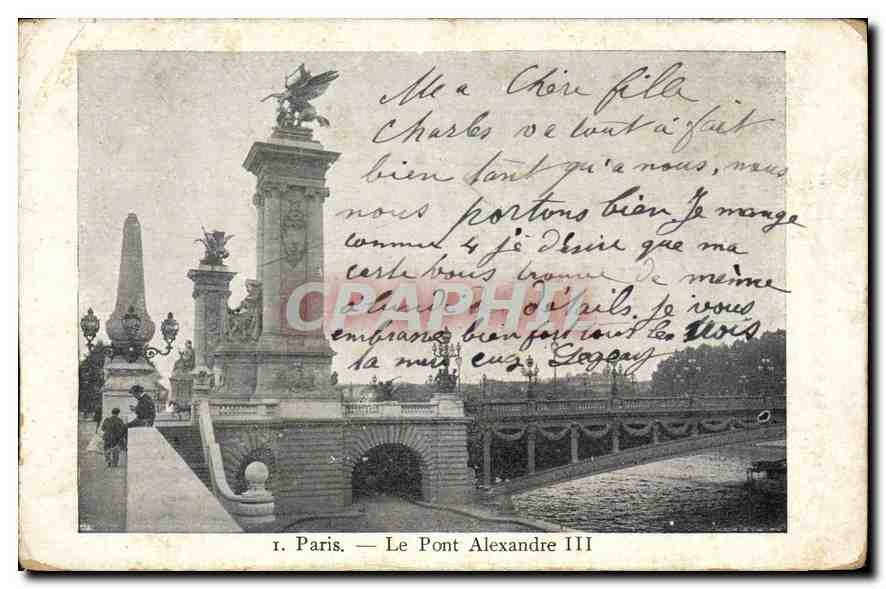 Ma Chère fille
Charles va tout à fait
bien tant qu'a nous, nous
nous portons bien. Je mange
comme 4 je désire que ma
carte vous trouve de même
et détails. je vous
embrasse bien fort tous les trois
CPAPHIL.com
1. Paris. — Le Pont Alexandre III